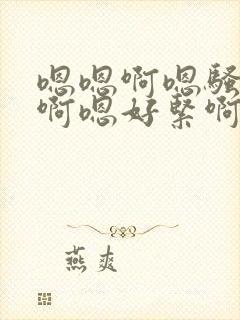 嗯嗯啊嗯骚
啊嗯好紧啊
燕爽